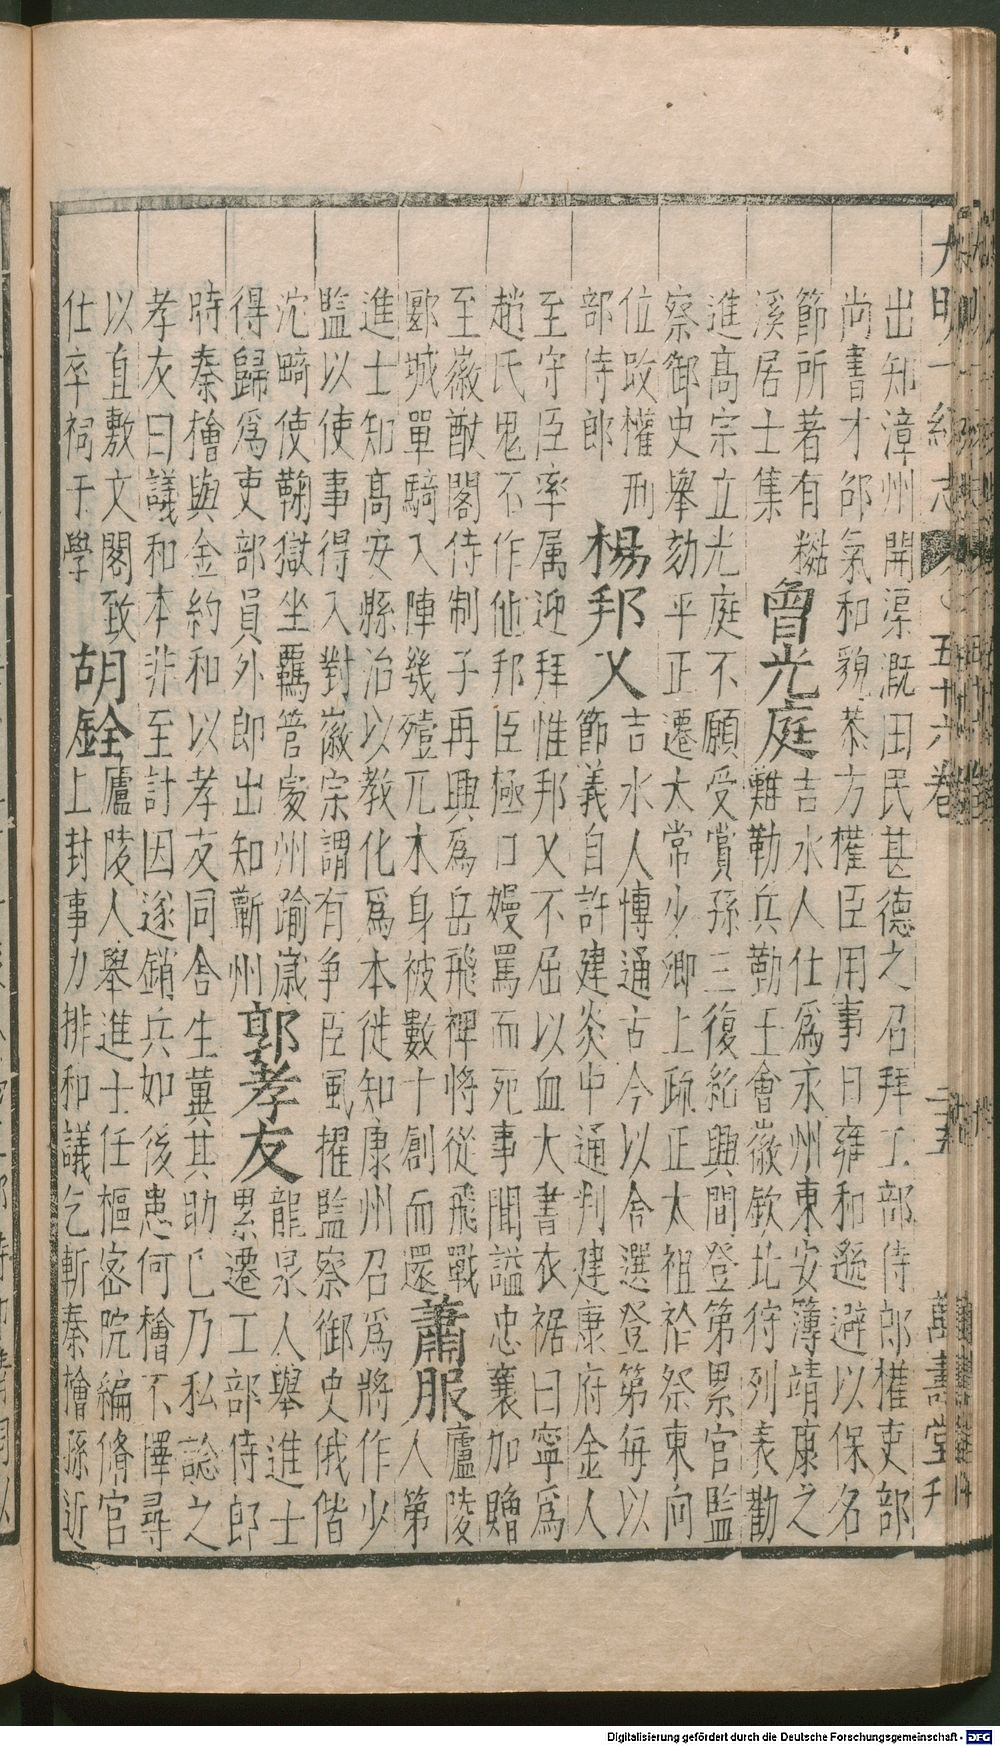 大明一統志 五十六卷 二十五 萬壽堂刋
出知漳州開渠溉田民甚德之召拜工部侍郎權吏部
尚書才邵氣和貌恭方權臣用事日雍和遜避以保名
節所著有檆
溪居士集
曾光庭
吉水人仕爲永州東安簿靖康之
難勒兵勤王會徽欽北狩列表勸
進高宗立光庭不願受賞孫三復紹興間登第累官監
察御史舉劾平正遷太常少卿上疏正太祖祫祭東向
位改權刑
部侍郎
楊邦乂
吉水人博通古今以舍選登第每以
節義自許建炎中通判建康府金人
至守臣率属迎拜惟邦乂不屈以血大書衣裾曰寧爲
趙氏鬼不作他邦臣極口嫚罵而死事聞謚忠襄加贈
至徽猷閣待制子再興爲岳飛裨將從飛戰
郾城單騎入陣幾殪兀朮身被數十創而還
蕭服
廬陵
人第
進士知高安縣治以教化爲本徙知康州召爲將作少
監以使事得入對徽宗謂有争臣風擢監察御史俄偕
沈畸使鞠獄坐羈管處州踰歲
得歸爲吏部員外郎出知蘄州
郭孝友
龍泉人舉進士
累遷工部侍郎
時秦檜與金約和以孝友同舍生冀其助己乃私諗之
孝友曰議和本非至計因遂銷兵如後患何檜不懌尋
以直敷文閣致
仕卒祠于學
胡銓
廬陵人舉進士任樞密院編脩官
上封事力排和議乞斬秦檜孫近
Digitalisierung gefördert durch die Deutsche Forschungsgemeinschaft - DFG